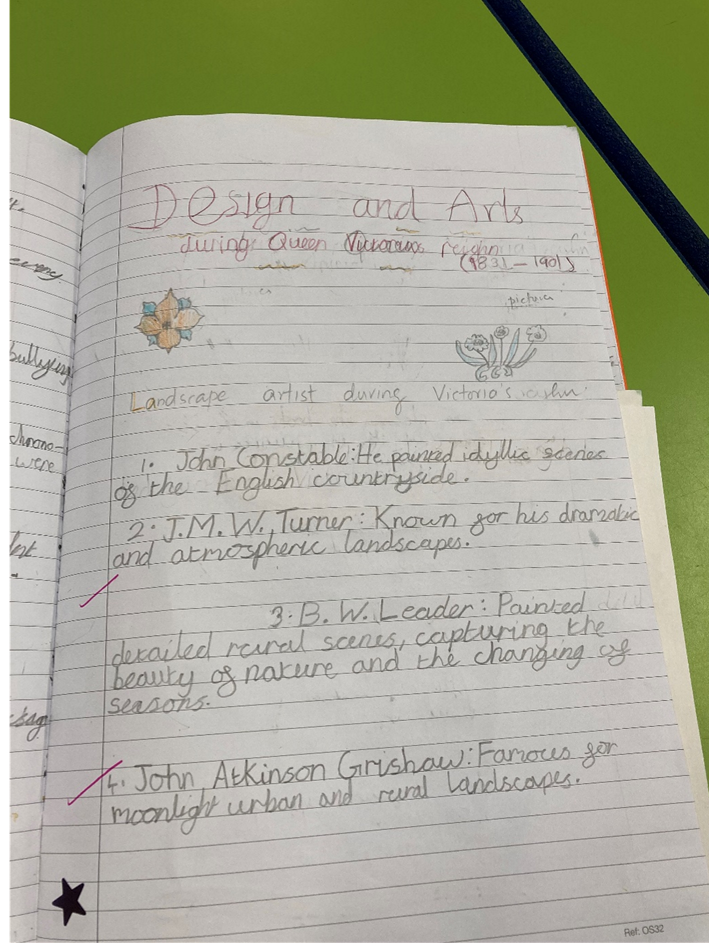 Design and Arts
during Queen Victorias reighn
(1831-1901)
picture
Landscape artist during Victoria's
1. John Constable: He painted idyllic scenes
of the English countryside.
2. J.M.W. Turner: Known for his dramatic
and atmospheric landscapes.
3. B.W. Leader: Painted
detailed rural scenes, capturing the
beauty of nature and the changing of
seasons.
4. John Atkinson Grishaw: Famous for
moonlight urban and rural landscapes.
bullying
chrono-
were
Ref: OS32